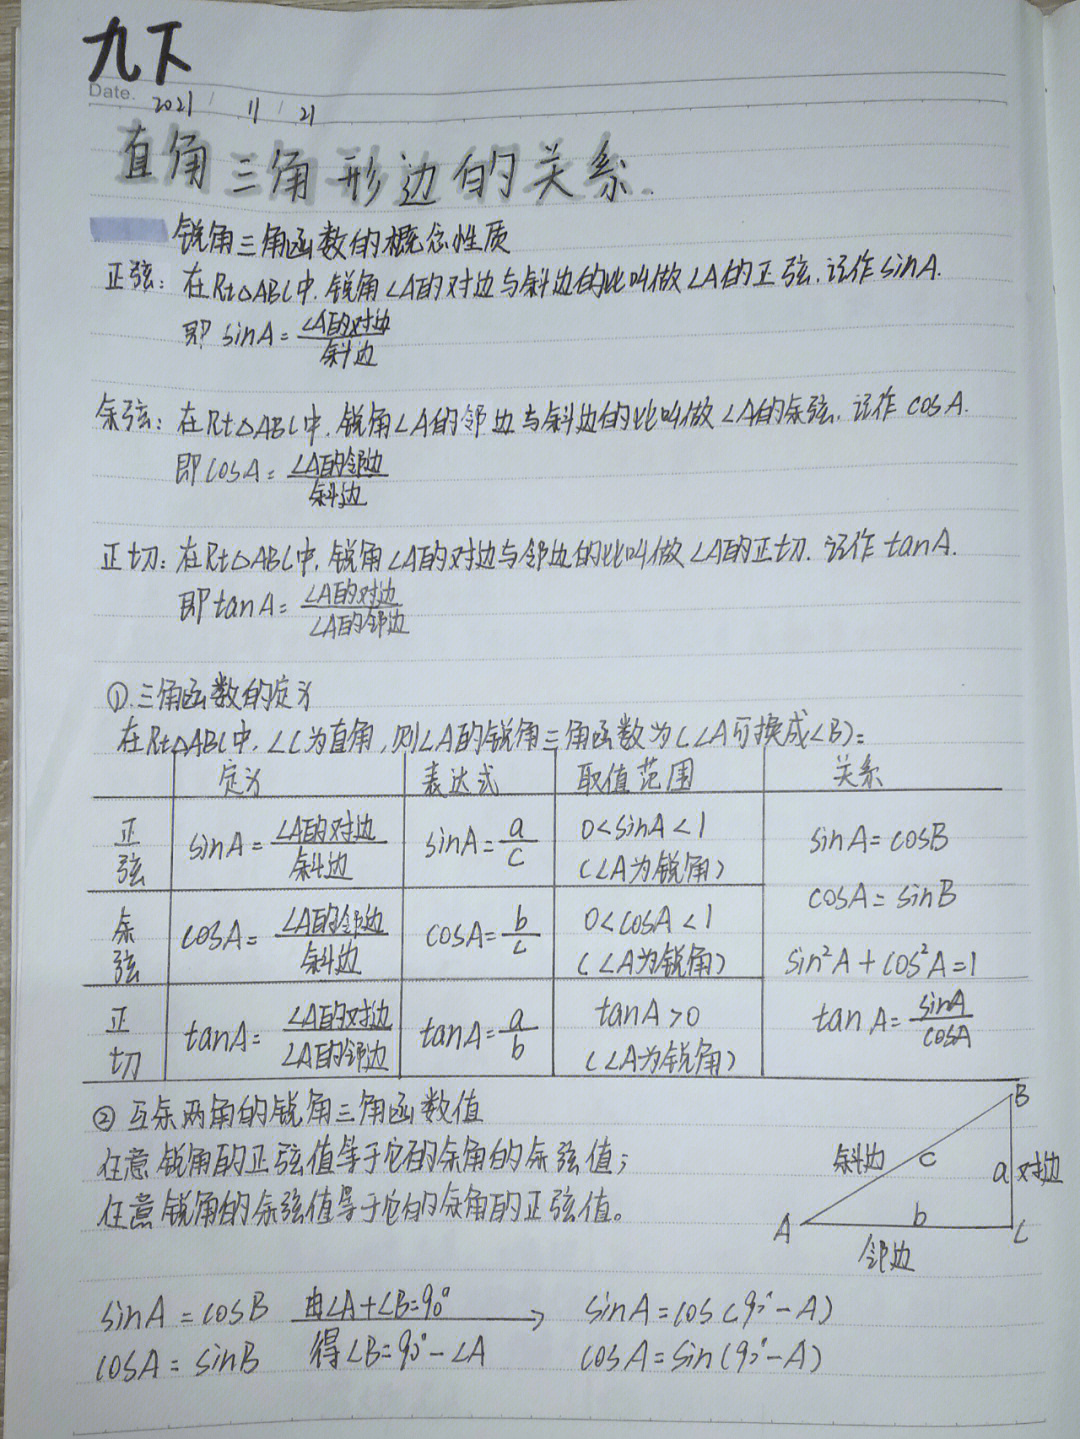 九下
Date. 2021 / 11 / 21
直角三角形边的关系.
锐角三角函数的概念性质
正弦: 在Rt△ABC中. 锐角∠A的对边与斜边的比叫做∠A的正弦. 记作 sinA.
即 sinA = ∠A的对边/斜边
余弦: 在Rt△ABC中. 锐角∠A的邻边与斜边的比叫做∠A的余弦. 记作 cosA.
即 cosA = ∠A的邻边/斜边
正切: 在Rt△ABC中. 锐角∠A的对边与邻边的比叫做∠A的正切. 记作 tanA.
即 tanA = ∠A的对边/∠A的邻边
①.三角函数的定义
在Rt△ABC中. ∠C为直角, 则∠A的锐角三角函数为(∠A可换成∠B):
定义 表达式 取值范围 关系
正弦 sinA = ∠A的对边/斜边 sinA = a/c 0<sinA<1 (∠A为锐角) sinA = cosB
cosA = sinB
余弦 cosA = ∠A的邻边/斜边 cosA = b/c 0<cosA<1 (∠A为锐角) sin²A + cos²A = 1
正切 tanA = ∠A的对边/∠A的邻边 tanA = a/b tanA>0 (∠A为锐角) tanA = sinA/cosA
② 互余两角的锐角三角函数值
任意锐角的正弦值等于它的余角的余弦值;
任意锐角的余弦值等于它的余角的正弦值。
B
斜边 c a 对边
A b C
邻边
sinA = cosB 由∠A+∠B=90° → sinA = cos(90°-A)
cosA = sinB 得∠B=90°-∠A cosA = sin(90°-A)